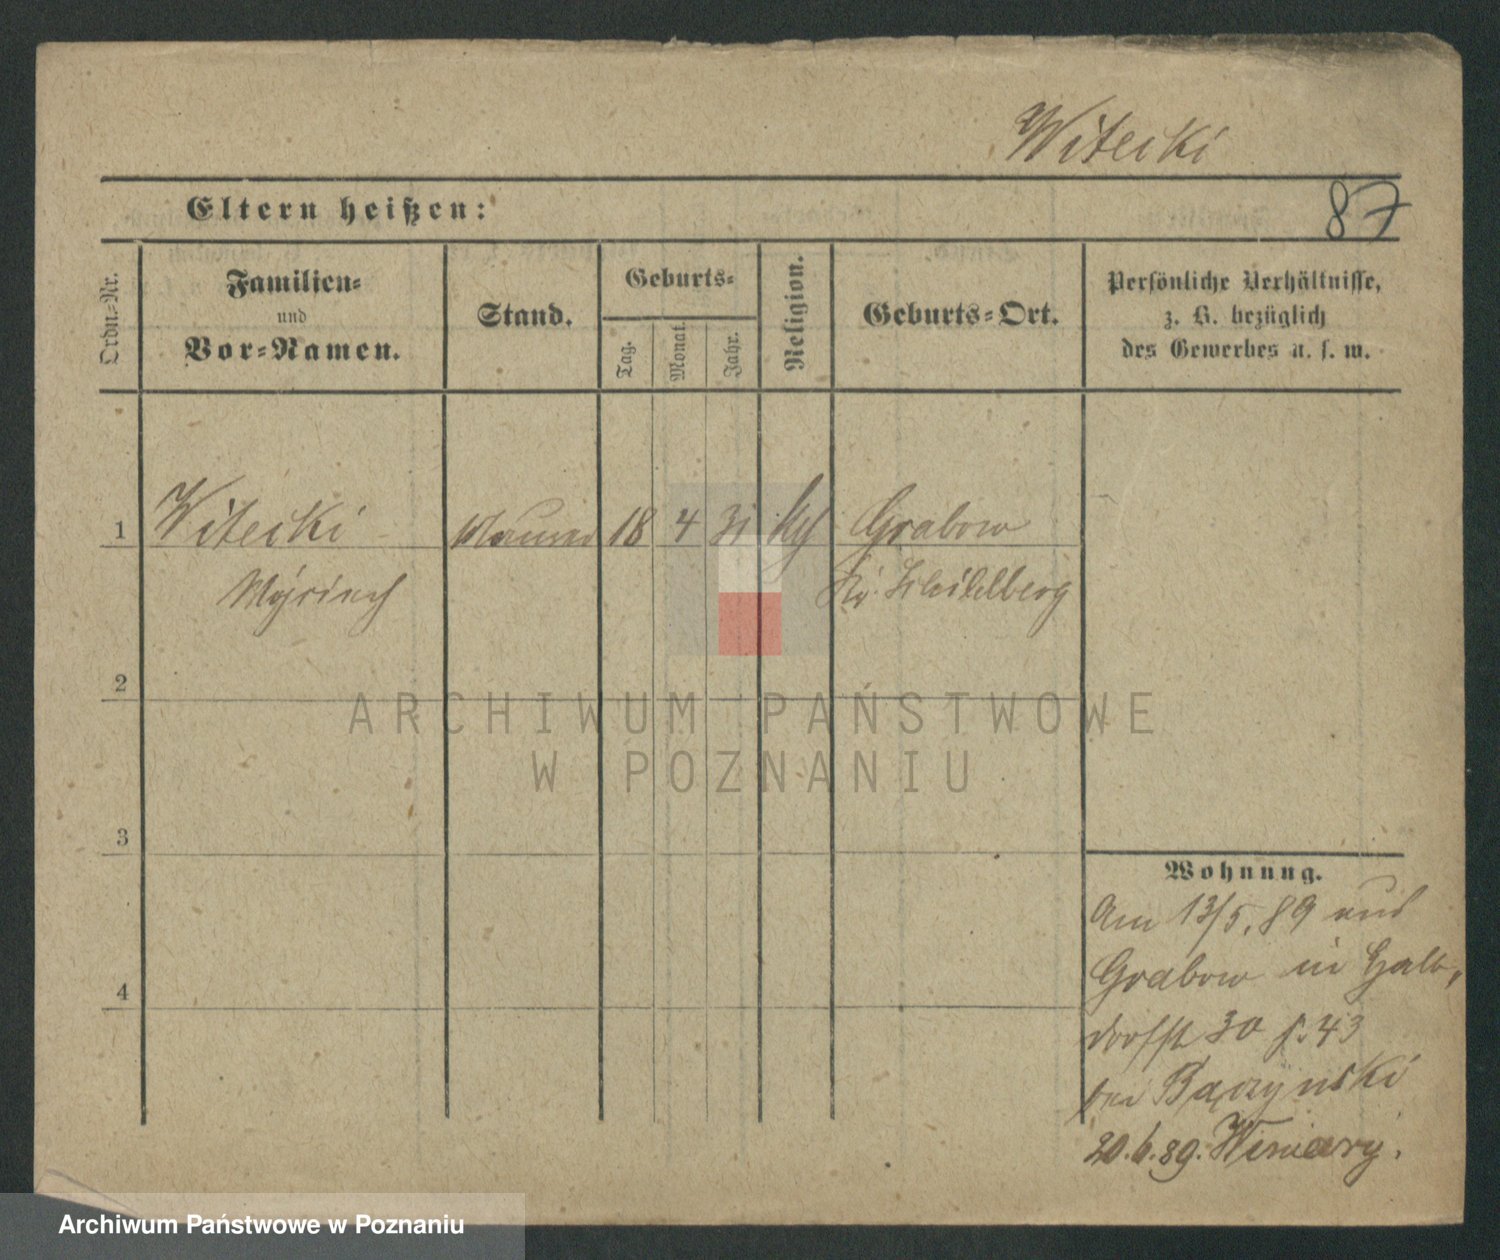 Witecki
87
Eltern heißen:
Ordn.-Nr.
Familien-
und
Vor-Namen.
Stand.
Geburts-
Tag.
Monat.
Jahr.
Religion.
Geburts-Ort.
Persönliche Verhältnisse,
z. B. bezüglich
des Gewerbes u. s. w.
1 Witecki Maurer 18 4 31 Grabow
Kr. Schildberg
2
3
4
Wohnung.
Am 13/5. 89 aus
Grabow in Halb-
dorffst 30 f. 43
bei Bączynski
20.6.89. Winiary.
ARCHIWUM PAŃSTWOWE
W POZNANIU
Archiwum Państwowe w Poznaniu